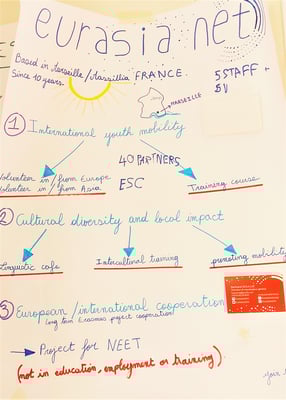 eurasia net
Based in Marseille / Massillia FRANCE.
Since 10 years.
5 STAFF +
MARSEILLE
1 International youth mobility
40 PARTNERS
Volunteer in / from Europe
Volunteer in / from Asia
ESC
Training course
2 Cultural diversity and local impact
Linguistic cafe
Intercultural training
promoting mobility
3 European / international cooperation
long term Erasmus project cooperation
Project for NEET
(not in education, employment or training).
join